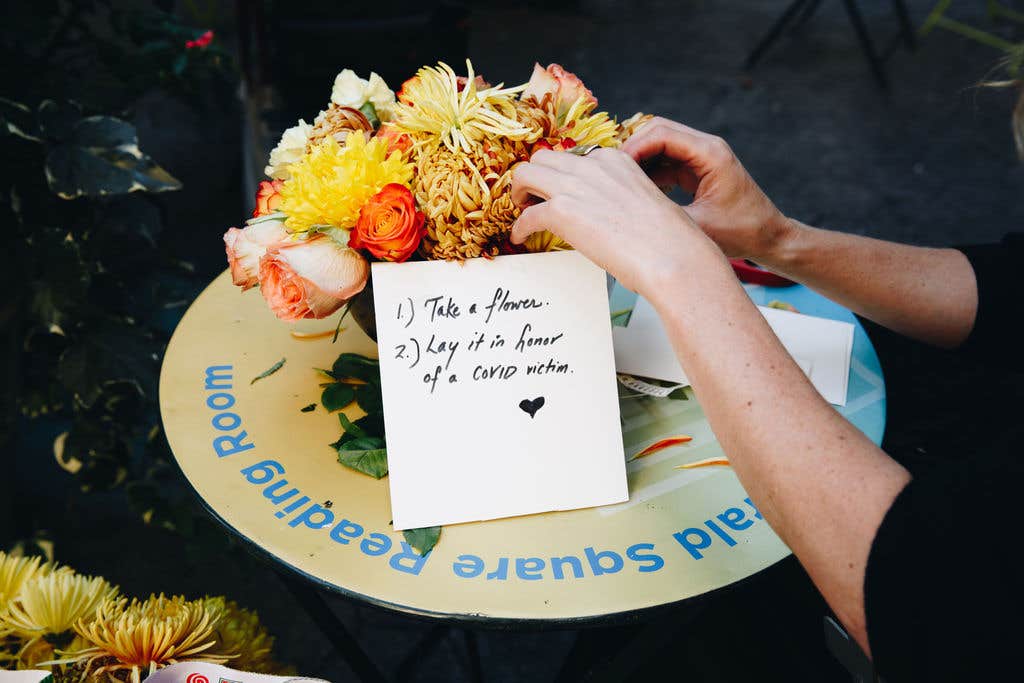 1.) Take a flower.
2.) Lay it in honor
of a COVID victim.
rald Square Reading Room